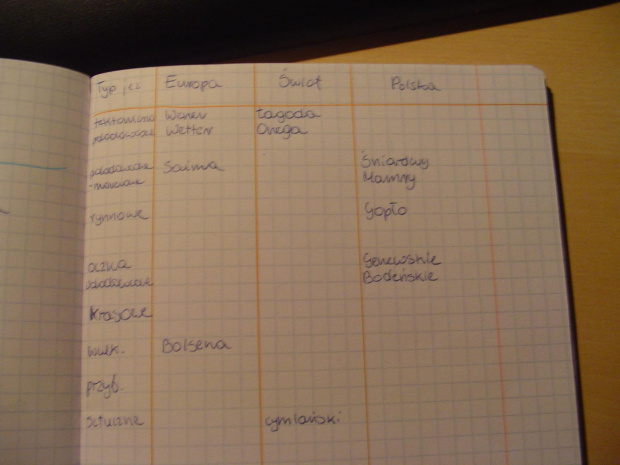 Typ jez Europa Świat Polska
tektoniczno Wener Ładoga
polodowcowe Wetter Onega
polodowcowe Saima Śniardwy
-morenowe Mamry
rynnowe Gopło
oczka Genewskie
polodowcowe Bodeńskie
Krasowe
wulk. Bolsena
przyb.
sztuczne cymlański